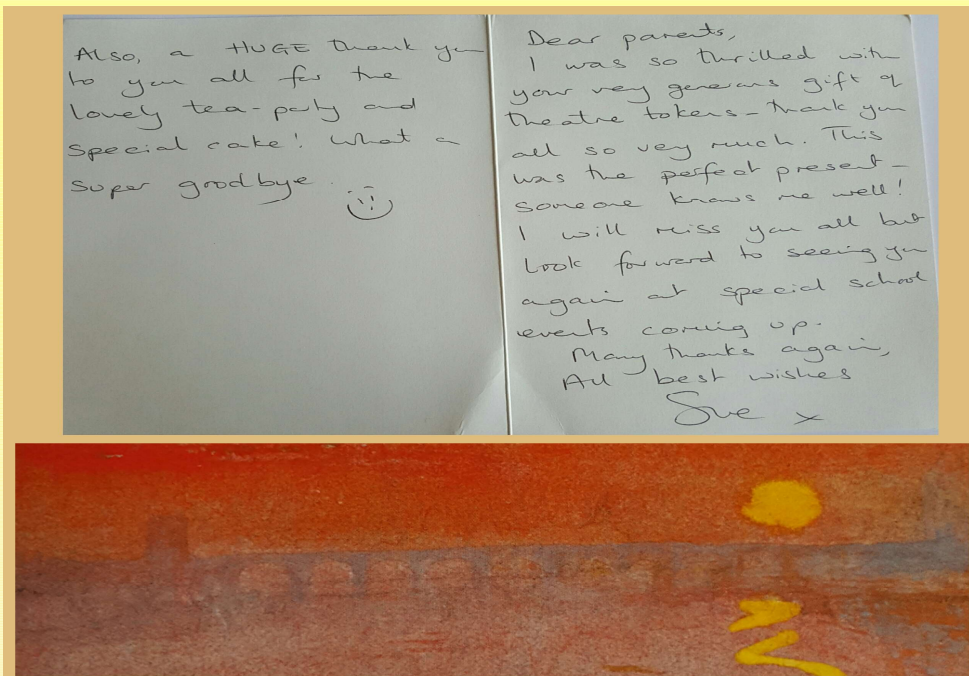 Also, a HUGE thank you
to you all for the
lovely tea-party and
special cake! What a
super goodbye
Dear parents,
I was so thrilled with
your very generous gift of
theatre tokens - thank you
all so very much. This
was the perfect present -
someone knows me well!
I will miss you all but
look forward to seeing you
again at special school
events coming up.
Many thanks again,
All best wishes
Sue x